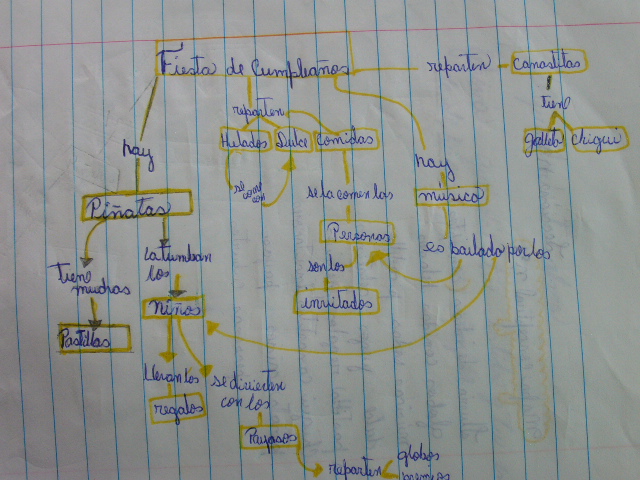 Fiesta de Cumpleaños
reparten
Canastitas
reparten
tiene
Helados
Dulce
Comidas
galleta
chigui
hay
hay
se come
con
se la comen las
música
Piñatas
Personas
es bailado por los
la tumban
los
son los
tiene
muchas
niños
invitados
Pastillas
llevan los
se divierten
con los
regalos
Payasos
reparten
globos
premios